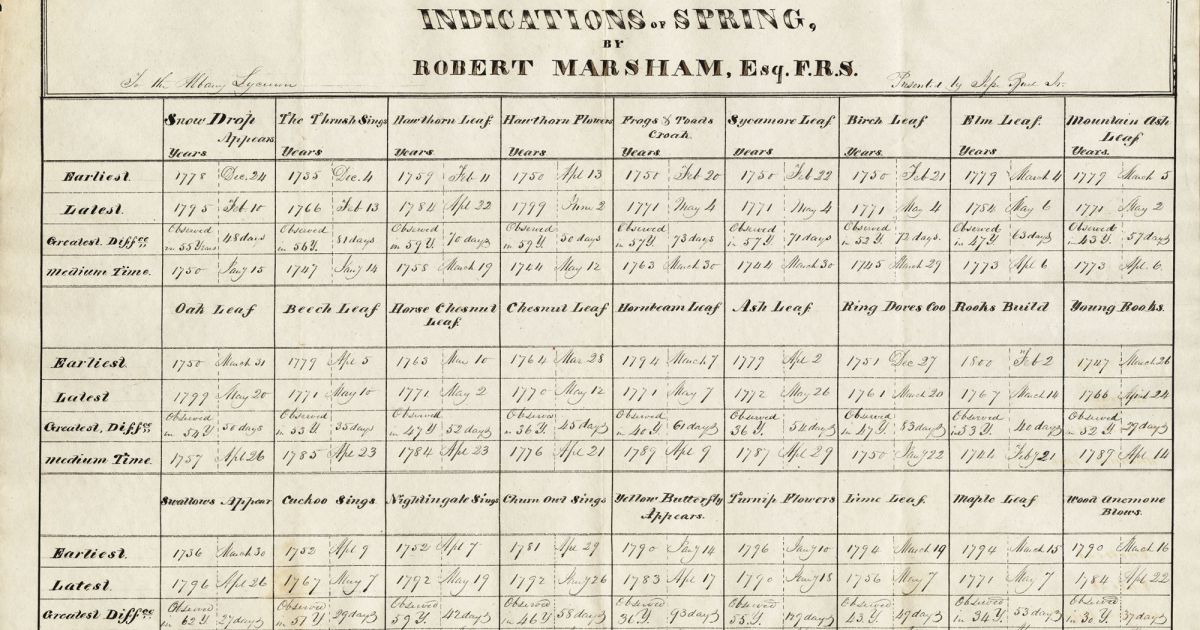 INDICATIONS OF SPRING,
BY
ROBERT MARSHAM, Esq. F.R.S.
To the Albany Lyceum Presented by Jr.
Snow Drop Appears The Thrush Sings Hawthorn Leaf Hawthorn Flowers Frogs & Toads Croak Sycamore Leaf Birch Leaf Elm Leaf. Mountain Ash Leaf
Years Years Years. Years. Years. Years Years. Years. Years.
Earliest. 1778 Dec. 24 1735 Dec. 4 1759 Feb 11 1750 Apl 13 1750 Feb 20 1750 Feb 22 1750 Feb 21 1779 March 4 1779 March 5
Latest. 1795 Feb 10 1766 Feb 13 1784 Apl 22 1799 June 2 1771 May 4 1771 May 4 1771 May 4 1784 May 6 1771 May 2
Greatest Diffce Observed in 55 Years 48 days Observed in 56 Y. 81 days Observed in 59 Y 70 days Observed in 59 Y. 50 days Observed in 57 Y 73 days Observed in 57 Y. 71 days Observed in 52 Y. 72 days. Observed in 47 Y 63 days Observed in 43 Y. 57 days
Medium Time. 1750 Jany 15 1747 Jany 14 1758 March 19 1744 May 12 1763 March 30 1744 March 30 1745 March 29 1773 Apl. 6 1773 Apl. 6.
Oak Leaf Beech Leaf Horse Chesnut Leaf. Chesnut Leaf Hornbeam Leaf Ash Leaf. Ring Doves Coo Rooks Build Young Rooks.
Earliest. 1750 March 31 1779 Apl 5 1763 Mar 10 1764 Mar 28 1794 March 7 1779 Apl 2 1751 Dec 27 1800 Feb 2 1747 March 26
Latest 1799 May 20 1771 May 10 1771 May 2 1770 May 12 1771 May 7 1772 May 26 1761 March 20 1767 March 14 1766 April 24
Greatest, Diffce Observed in 54 Y. 50 days Observed in 53 Y. 35 days Observed in 47 Y 52 days Observed in 36 Y. 45 days Observed in 40 Y. 61 days Observed 36 Y. 54 days Observed in 47 Y. 83 days Observed in 53 Y. 40 days Observed in 52 Y. 27 days
Medium Time. 1757 Apl 26 1785 Apl 23 1784 Apl 23 1776 Apl 21 1789 Apl 9 1787 Apl 29 1750 Jany 22 1744 Feby 21 1789 Apl 14
Swallows Appear Cuckoo Sings Nightingale Sings Churn Owl Sings Yellow Butterfly Appears. Turnip Flowers Lime Leaf. Maple Leaf Wood Anemone Blows.
Earliest. 1736 March 30 1752 Apl 9 1752 Apl 7 1781 Apl 29 1790 Jany 14 1796 Jany 10 1794 March 19 1794 March 15 1790 March 16
Latest. 1796 Apl 26 1767 May 7 1792 May 19 1792 26 1783 Apl 17 1790 18 1756 May 7 1771 May 7 1784 Apl 22
Greatest Diffce Observed in 62 Y 27 days Observed in 51 Y 29 days Observed 59 Y. 42 days Observed in 46 Y 58 days Observed 36 Y. 93 days Observed 55. Y. 129 days Observed 43. Y. 49 days Observed in 34 Y. 53 days Observed in 30 Y. 37 days